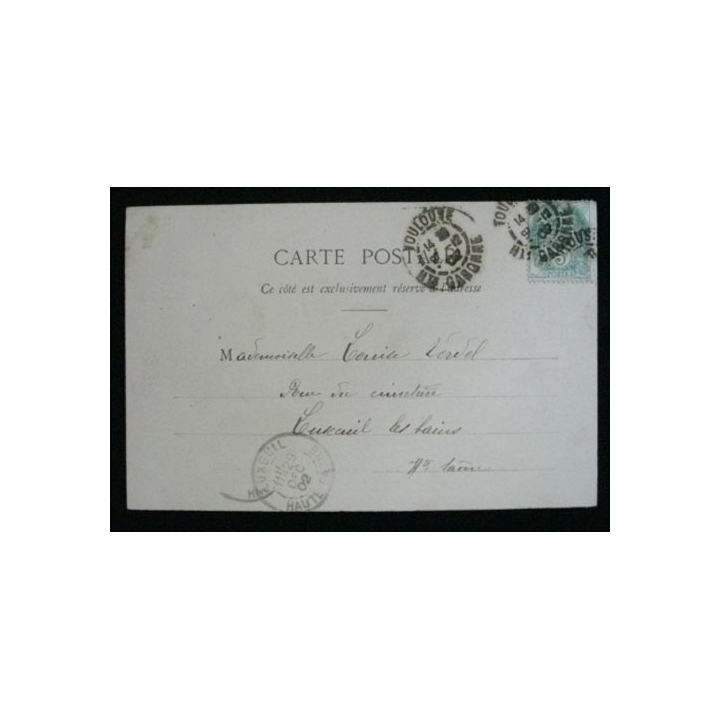 CARTE POSTALE
Ce côté est exclusivement réservé à l'adresse
Mademoiselle Louise Verdel
Rue du cimetière
Luxeuil les bains
Hte Saône
TOULOUSE
Hte GARONNE
TOU
Hte GARONNE
LUXEUIL
29
DEC
02
HAUTE